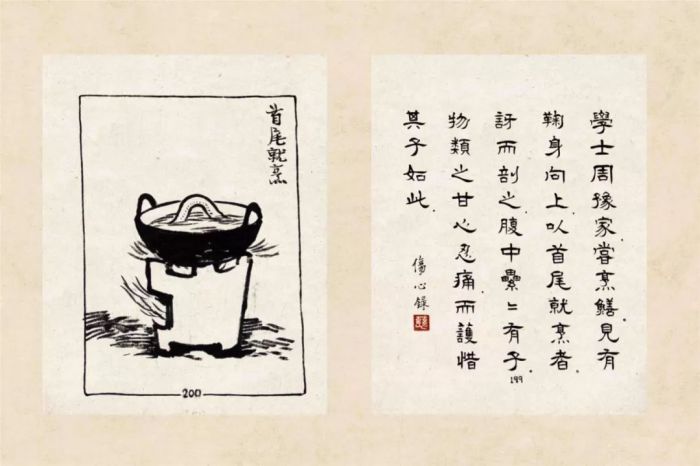 首尾就烹
200
學士周豫家嘗烹鱔見有
鞠身向上以首尾就烹者
訝而剖之腹中纍〻有子
物類之甘心忍痛而護惜
其子如此
傷心錄
199